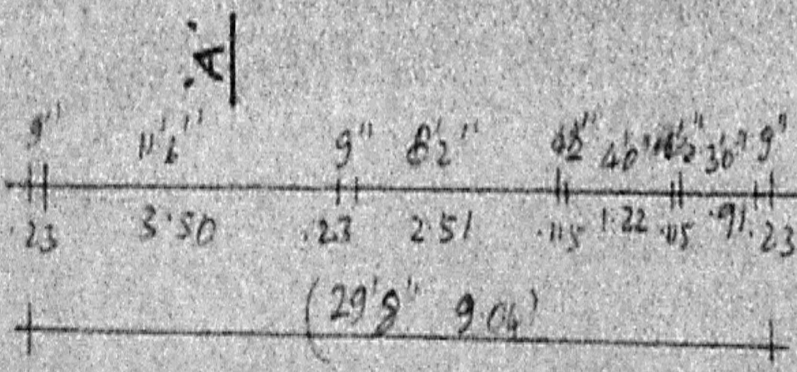 'A'
9" 11'6" 9" 8'2" 4½" 4'0" 4½" 3'0" 9"
.23 3.50 .23 2.51 .115 1.22 .115 .91 .23
(29'8" 9.04)